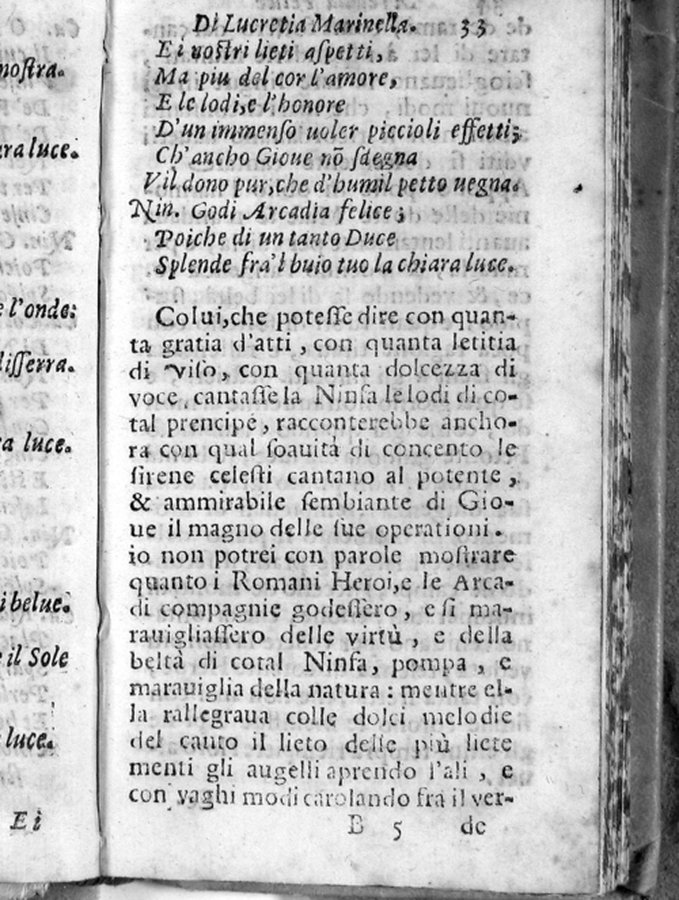 nostra.
ara luce.
e l'onde:
disserra.
ra luce.
i belue.
e il Sole
luce.
Ei
Di Lucretia Marinella. 33
E i uoſtri lieti aſpetti,
Ma piu del cor l'amore,
E le lodi,e l'honore
D'un immenſo uoler piccioli effetti;
Ch'ancho Gioue nō ſdegna
Vil dono pur,che d'humil petto uegna.
Nin. Godi Arcadia felice;
Poiche di un tanto Duce
Splende fra'l buio tuo la chiara luce.
Colui,che poteſſe dire con quan-
ta gratia d'atti , con quanta letitia
di viſo, con quanta dolcezza di
voce cantaſſe la Ninfa le lodi di co-
tal prencipe, racconterebbe ancho-
ra con qual ſoauità di concento le
ſirene celeſti cantano al potente ,
& ammirabile ſembiante di Gio-
ue il magno delle ſue operationi .
io non potrei con parole moſtrare
quanto i Romani Heroi,e le Arca-
di compagnie godeſſero, e ſi ma-
rauigliaſſero delle virtù , e della
beltà di cotal Ninfa, pompa , e
marauiglia della natura : mentre el-
la rallegraua colle dolci melodie
del canto il lieto delle più liete
menti gli augelli aprendo l'ali , e
con vaghi modi carolando fra il ver-
B 5 de